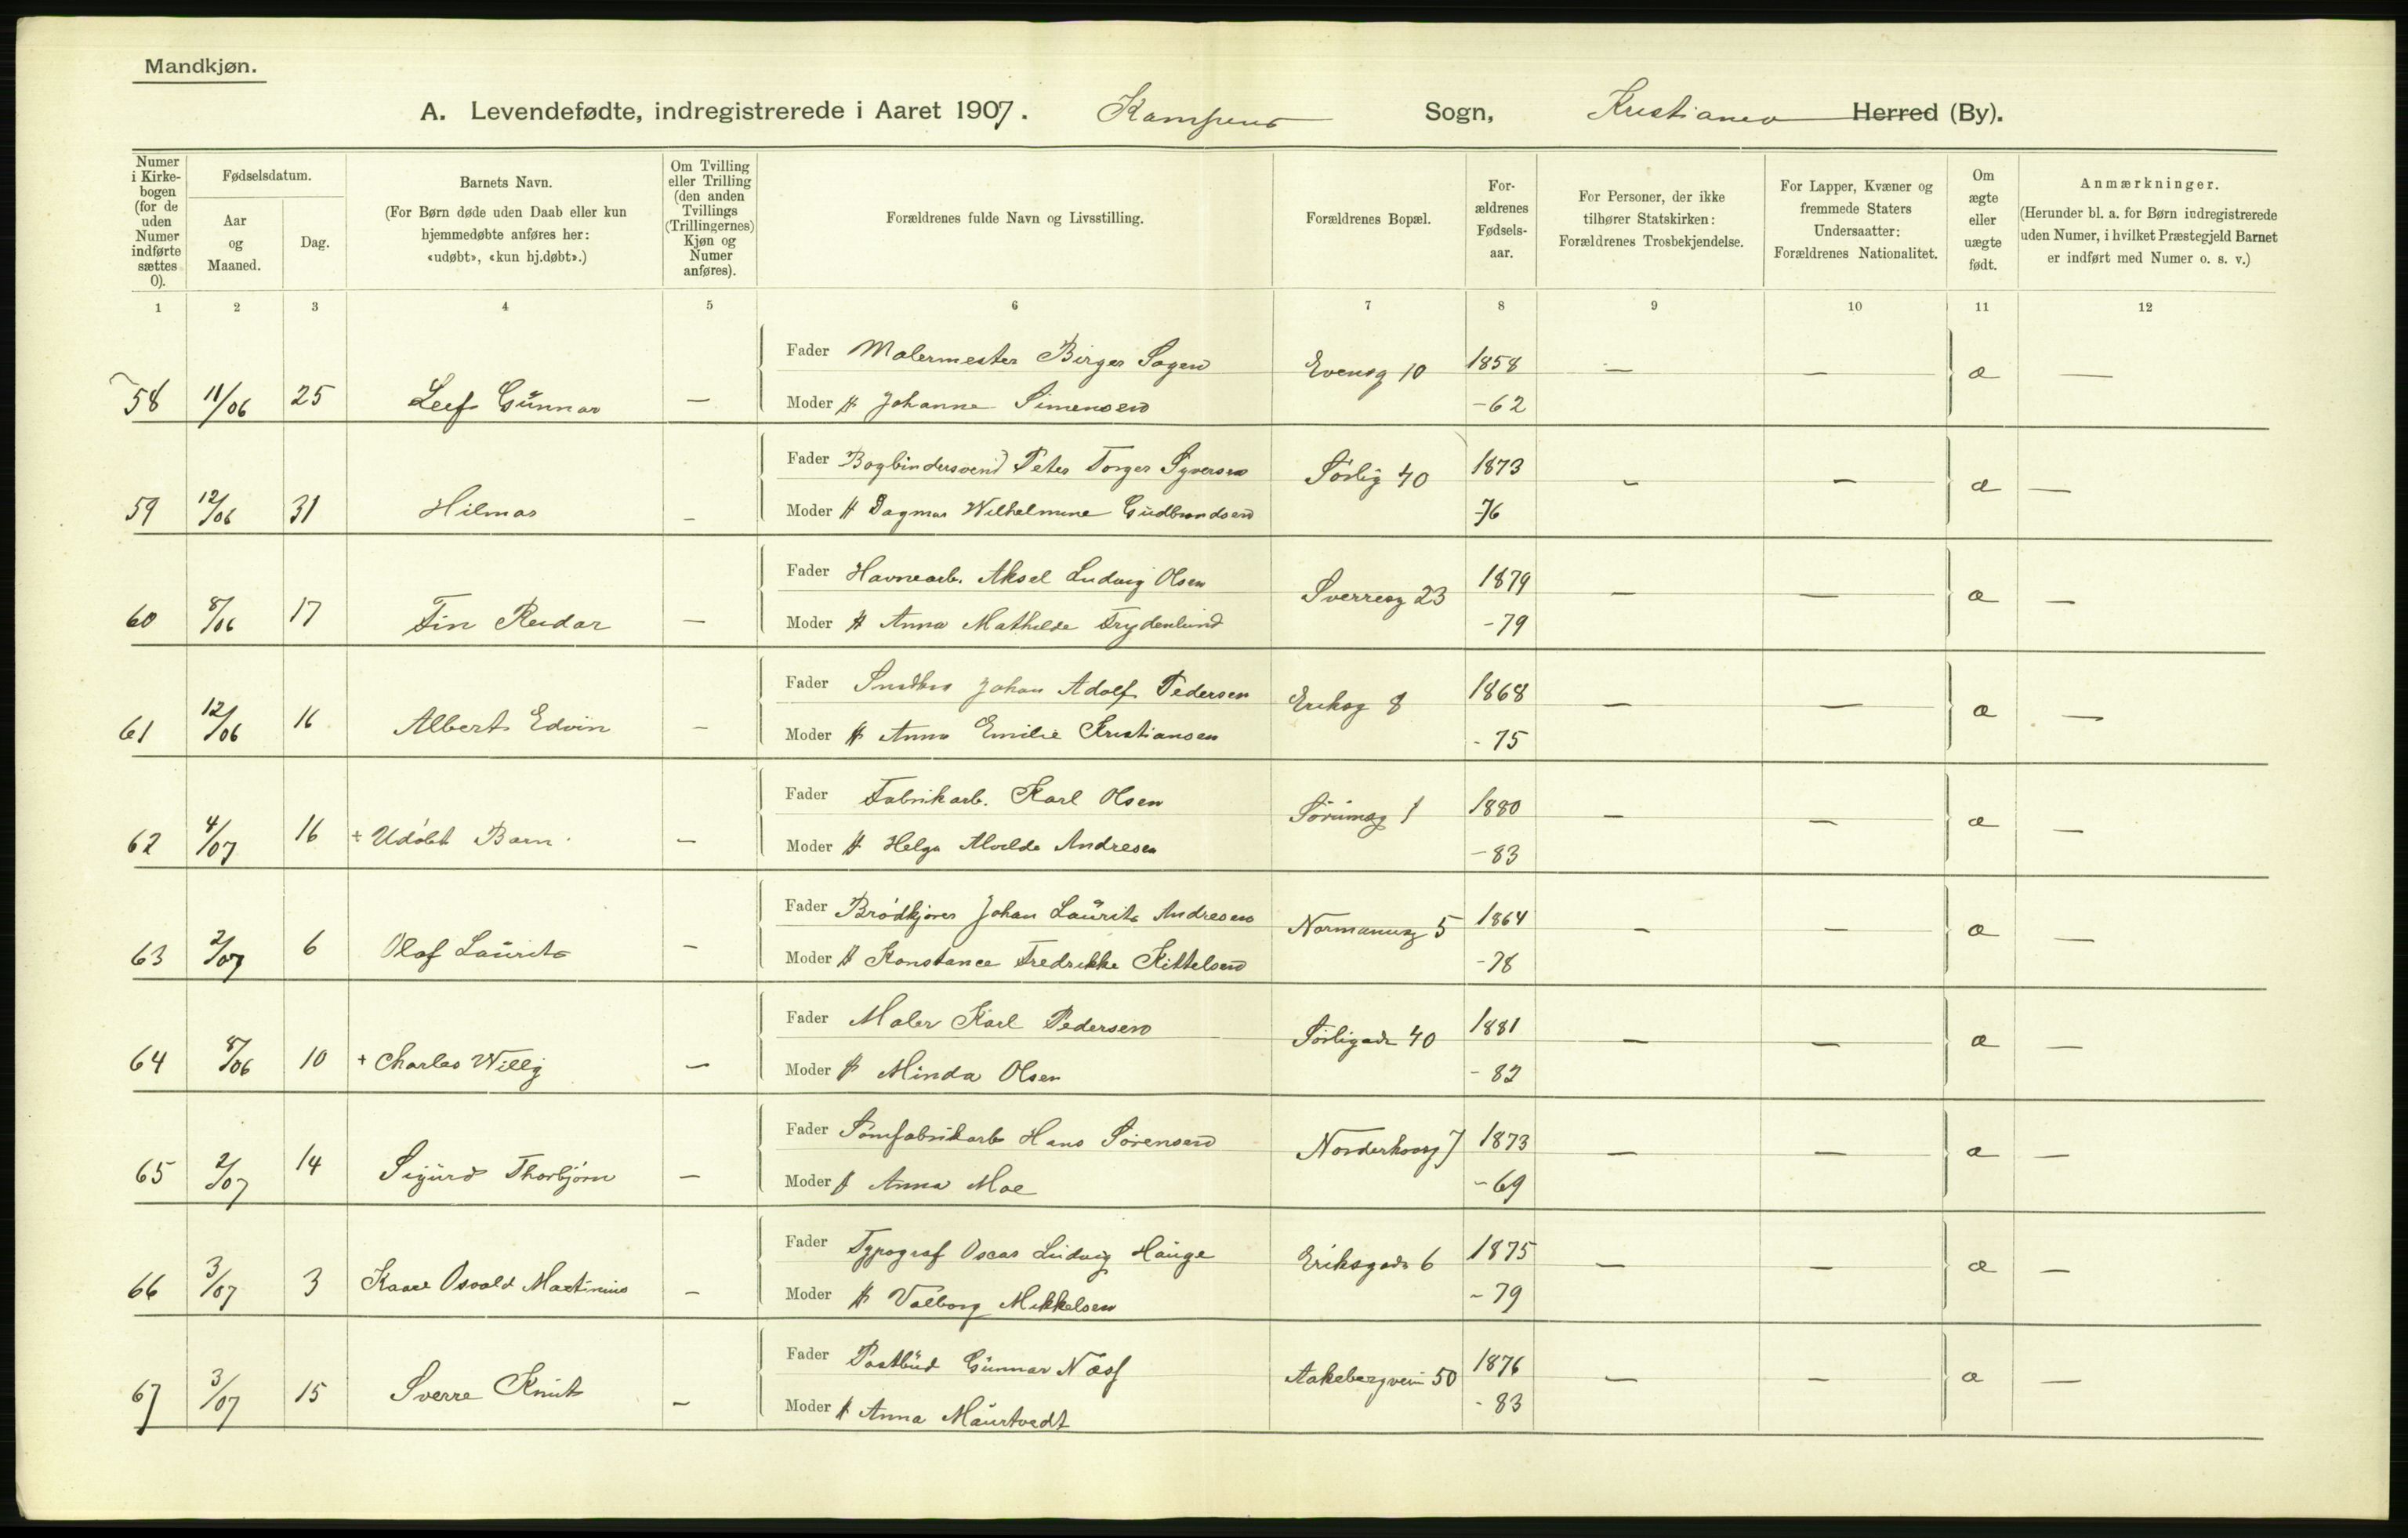 Mandkjøn.
A. Levendefødte, indregistrerede i Aaret 1907. Kampens Sogn, Kristiania Herred (By).
Numer i Kirkebogen (for de uden Numer indførte sættes 0).
Fødselsdatum.
Aar og Maaned.
Dag.
Barnets Navn.
(For Børn døde uden Daab eller kun hjemmedøbte anføres her: «udøbt», «kun hj.døbt».)
Om Tvilling eller Trilling (den anden Tvillings (Trillingernes) Kjøn og Numer anføres).
Forældrenes fulde Navn og Livsstilling.
Forældrenes Bopæl.
Forældrenes Fødselsaar.
For Personer, der ikke tilhører Statskirken: Forældrenes Trosbekjendelse.
For Lapper, Kvæner og fremmede Staters Undersaatter: Forældrenes Nationalitet.
Om ægte eller uægte født.
Anmærkninger.
(Herunder bl. a. for Børn indregistrerede uden Numer, i hvilket Præstegjeld Barnet er indført med Numer o. s. v.)
1 2 3 4 5 6 7 8 9 10 11 12
Fader Malermester Birger Sagen Evensg 10 1858 — — æ —
58 11/06 25 Leif Gunnar — Moder Johanne Simensen -62
Fader Bogbindersvend Peter Torger Syversen Sörlig 40 1873 — — æ —
59 12/06 31 Hilmar — Moder Dagmar Wilhelmine Gudbrandsen -76
Fader Havnearb. Aksel Ludvig Olsen Sverresg 23 1879 — — æ —
60 8/06 17 Fin Reidar — Moder Anna Mathilde Frydenlund -79
Fader Snedker Johan Adolf Pedersen Eriksg 8 1868 — — æ —
61 12/06 16 Albert Edvin — Moder Anna Emilie Kristiansen -75
Fader Fabrikarb. Karl Olsen Sörumsg 1 1880 — — æ —
62 4/07 16 + Udöbt Barn — Moder Helga Alvilde Andresen -83
Fader Brödkjörer Johan Laurits Andresen Normannsg 5 1864 — — æ —
63 2/07 6 Olaf Laurits — Moder Konstance Fredrikke Kittelsen -78
Fader Maler Karl Pedersen Sörligade 40 1881 — — æ —
64 8/06 10 + Charles Willy — Moder Minda Olsen -82
Fader Sömfabrikarb Hans Sörensen Norderhovsg 7 1873 — — æ —
65 2/07 14 Sigurd Thorbjörn — Moder Anna Moe -69
Fader Typograf Oscar Ludvig Hauge Eriksgade 6 1875 — — æ —
66 3/07 3 Kaare Osvald Martinius — Moder Valborg Mikkelsen -79
Fader Postbud Gunnar Næss Aakebergveien 50 1876 — — æ —
67 3/07 15 Sverre Knut — Moder Anna Maurtvedt -83